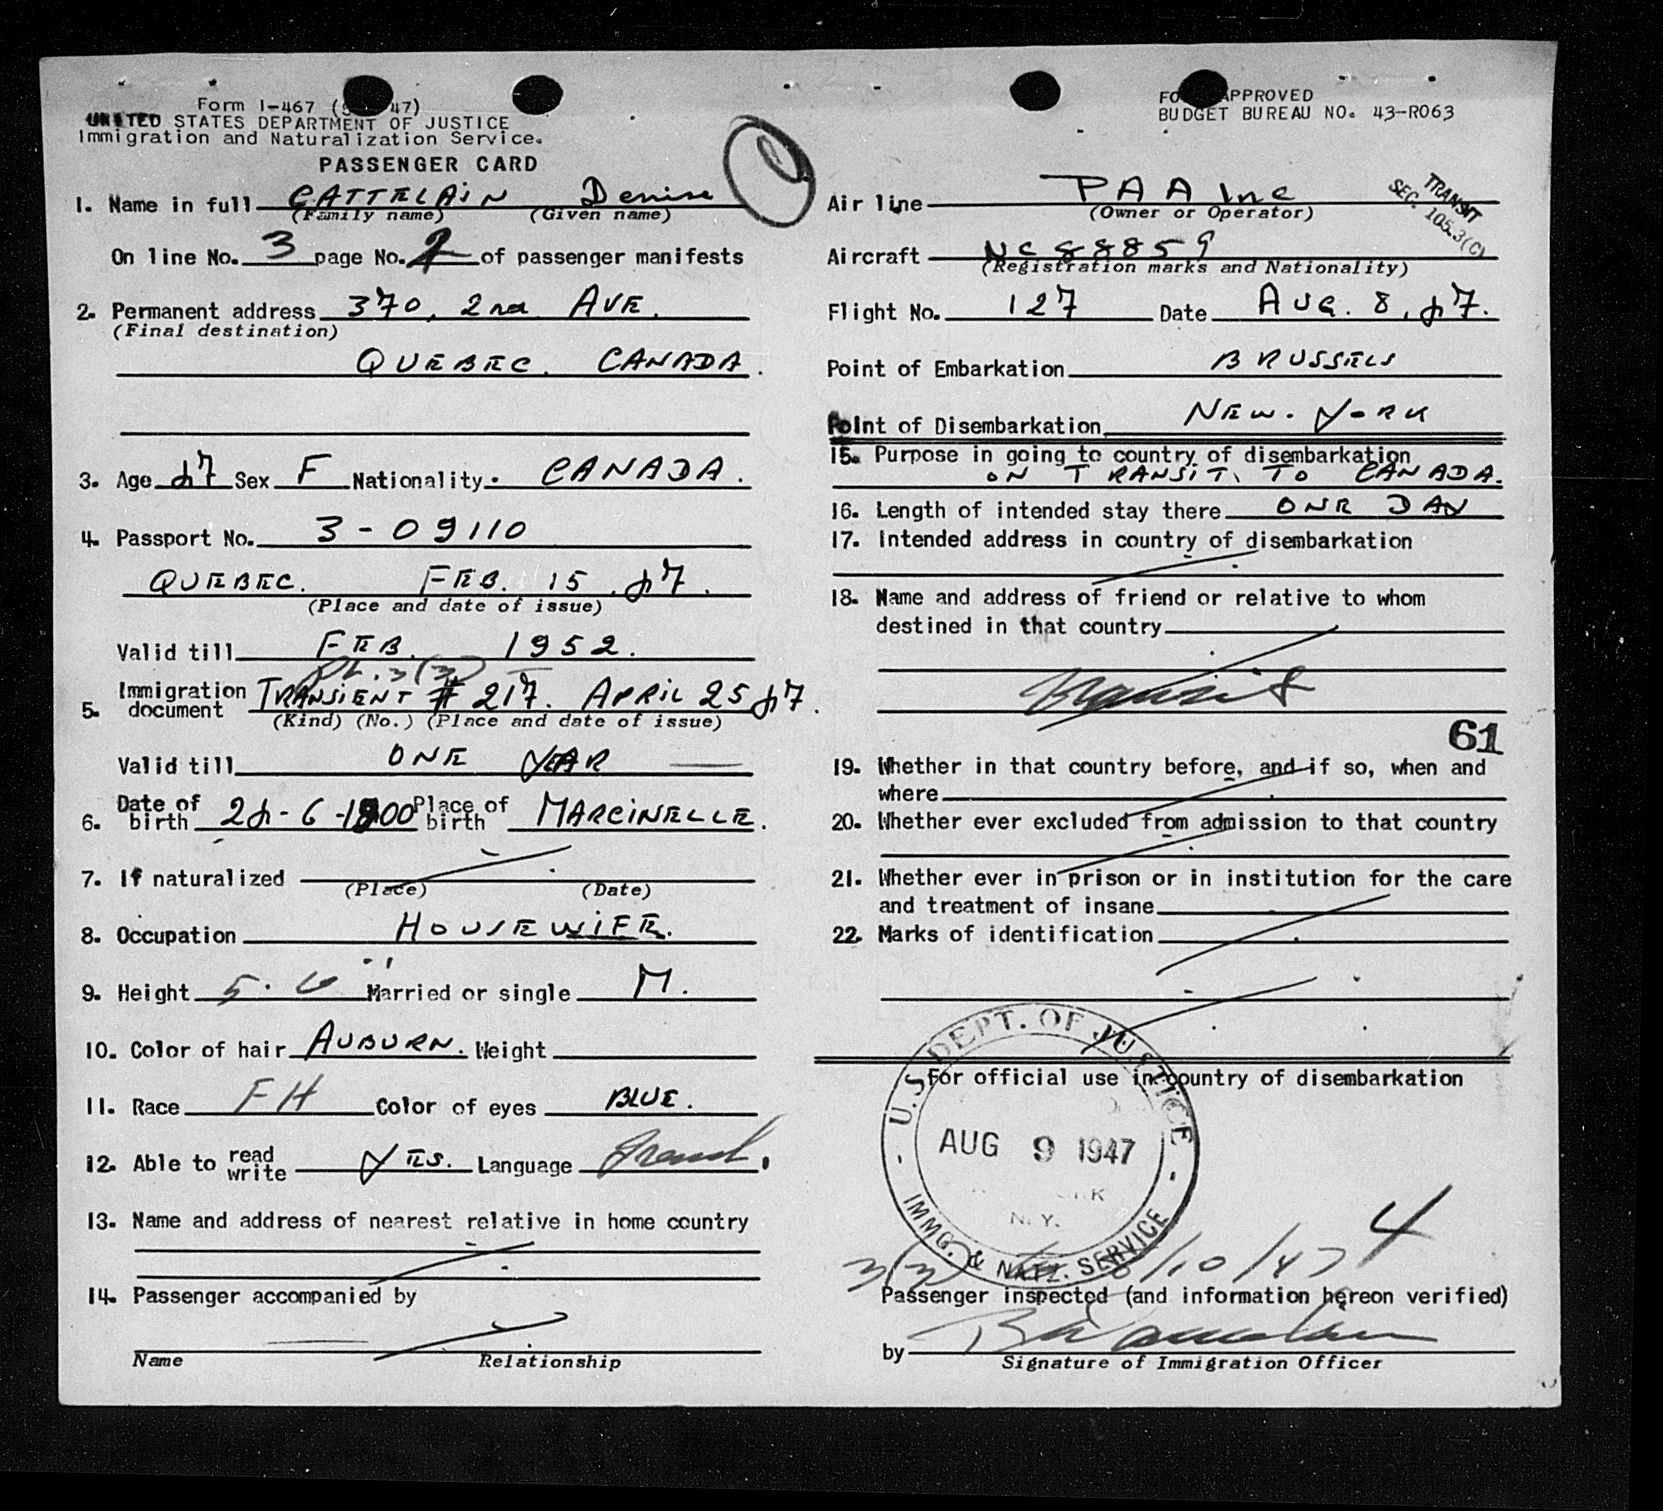 Form I-467 ( 47)
UNITED STATES DEPARTMENT OF JUSTICE
Immigration and Naturalization Service.
PASSENGER CARD
1. Name in full CATTELAIN Denise
(Family name) (Given name)
On line No. 3 page No. 2 of passenger manifests
2. Permanent address 370, 2nd AVE.
(Final destination)
QUEBEC. CANADA.
3. Age 47 Sex F Nationality. CANADA.
4. Passport No. 3-09110
QUEBEC. FEB. 15. 47.
(Place and date of issue)
Valid till FEB. 1952.
3(3)
5. Immigration document TRANSIENT # 217. APRIL 25 47.
(Kind) (No.) (Place and date of issue)
Valid till ONE YEAR
6. Date of birth 24-6-1900 Place of birth MARCINELLE.
7. If naturalized
(Place) (Date)
8. Occupation HOUSEWIFE.
9. Height 5.6 Married or single M.
10. Color of hair AUBURN. Weight
11. Race FH Color of eyes BLUE.
12. Able to read write YES. Language French.
13. Name and address of nearest relative in home country
14. Passenger accompanied by
Name Relationship
FORM APPROVED
BUDGET BUREAU NO. 43-R063
TRANSIT
SEC. 105.3(C)
Air line PAA Inc
(Owner or Operator)
Aircraft NC 88859
(Registration marks and Nationality)
Flight No. 127 Date AUG. 8, 47.
Point of Embarkation BRUSSELS
Point of Disembarkation NEW-YORK
15. Purpose in going to country of disembarkation
ON TRANSIT. TO CANADA.
16. Length of intended stay there ONE DAY
17. Intended address in country of disembarkation
18. Name and address of friend or relative to whom
destined in that country
Transit
61
19. Whether in that country before, and if so, when and
where
20. Whether ever excluded from admission to that country
21. Whether ever in prison or in institution for the care
and treatment of insane
22. Marks of identification
For official use in country of disembarkation
U.S. DEPT. OF JUSTICE
AUG 9 1947
N.Y.
IMMG. & NATZ. SERVICE
3(3) /10/47 4
Passenger inspected (and information hereon verified)
by
Signature of Immigration Officer